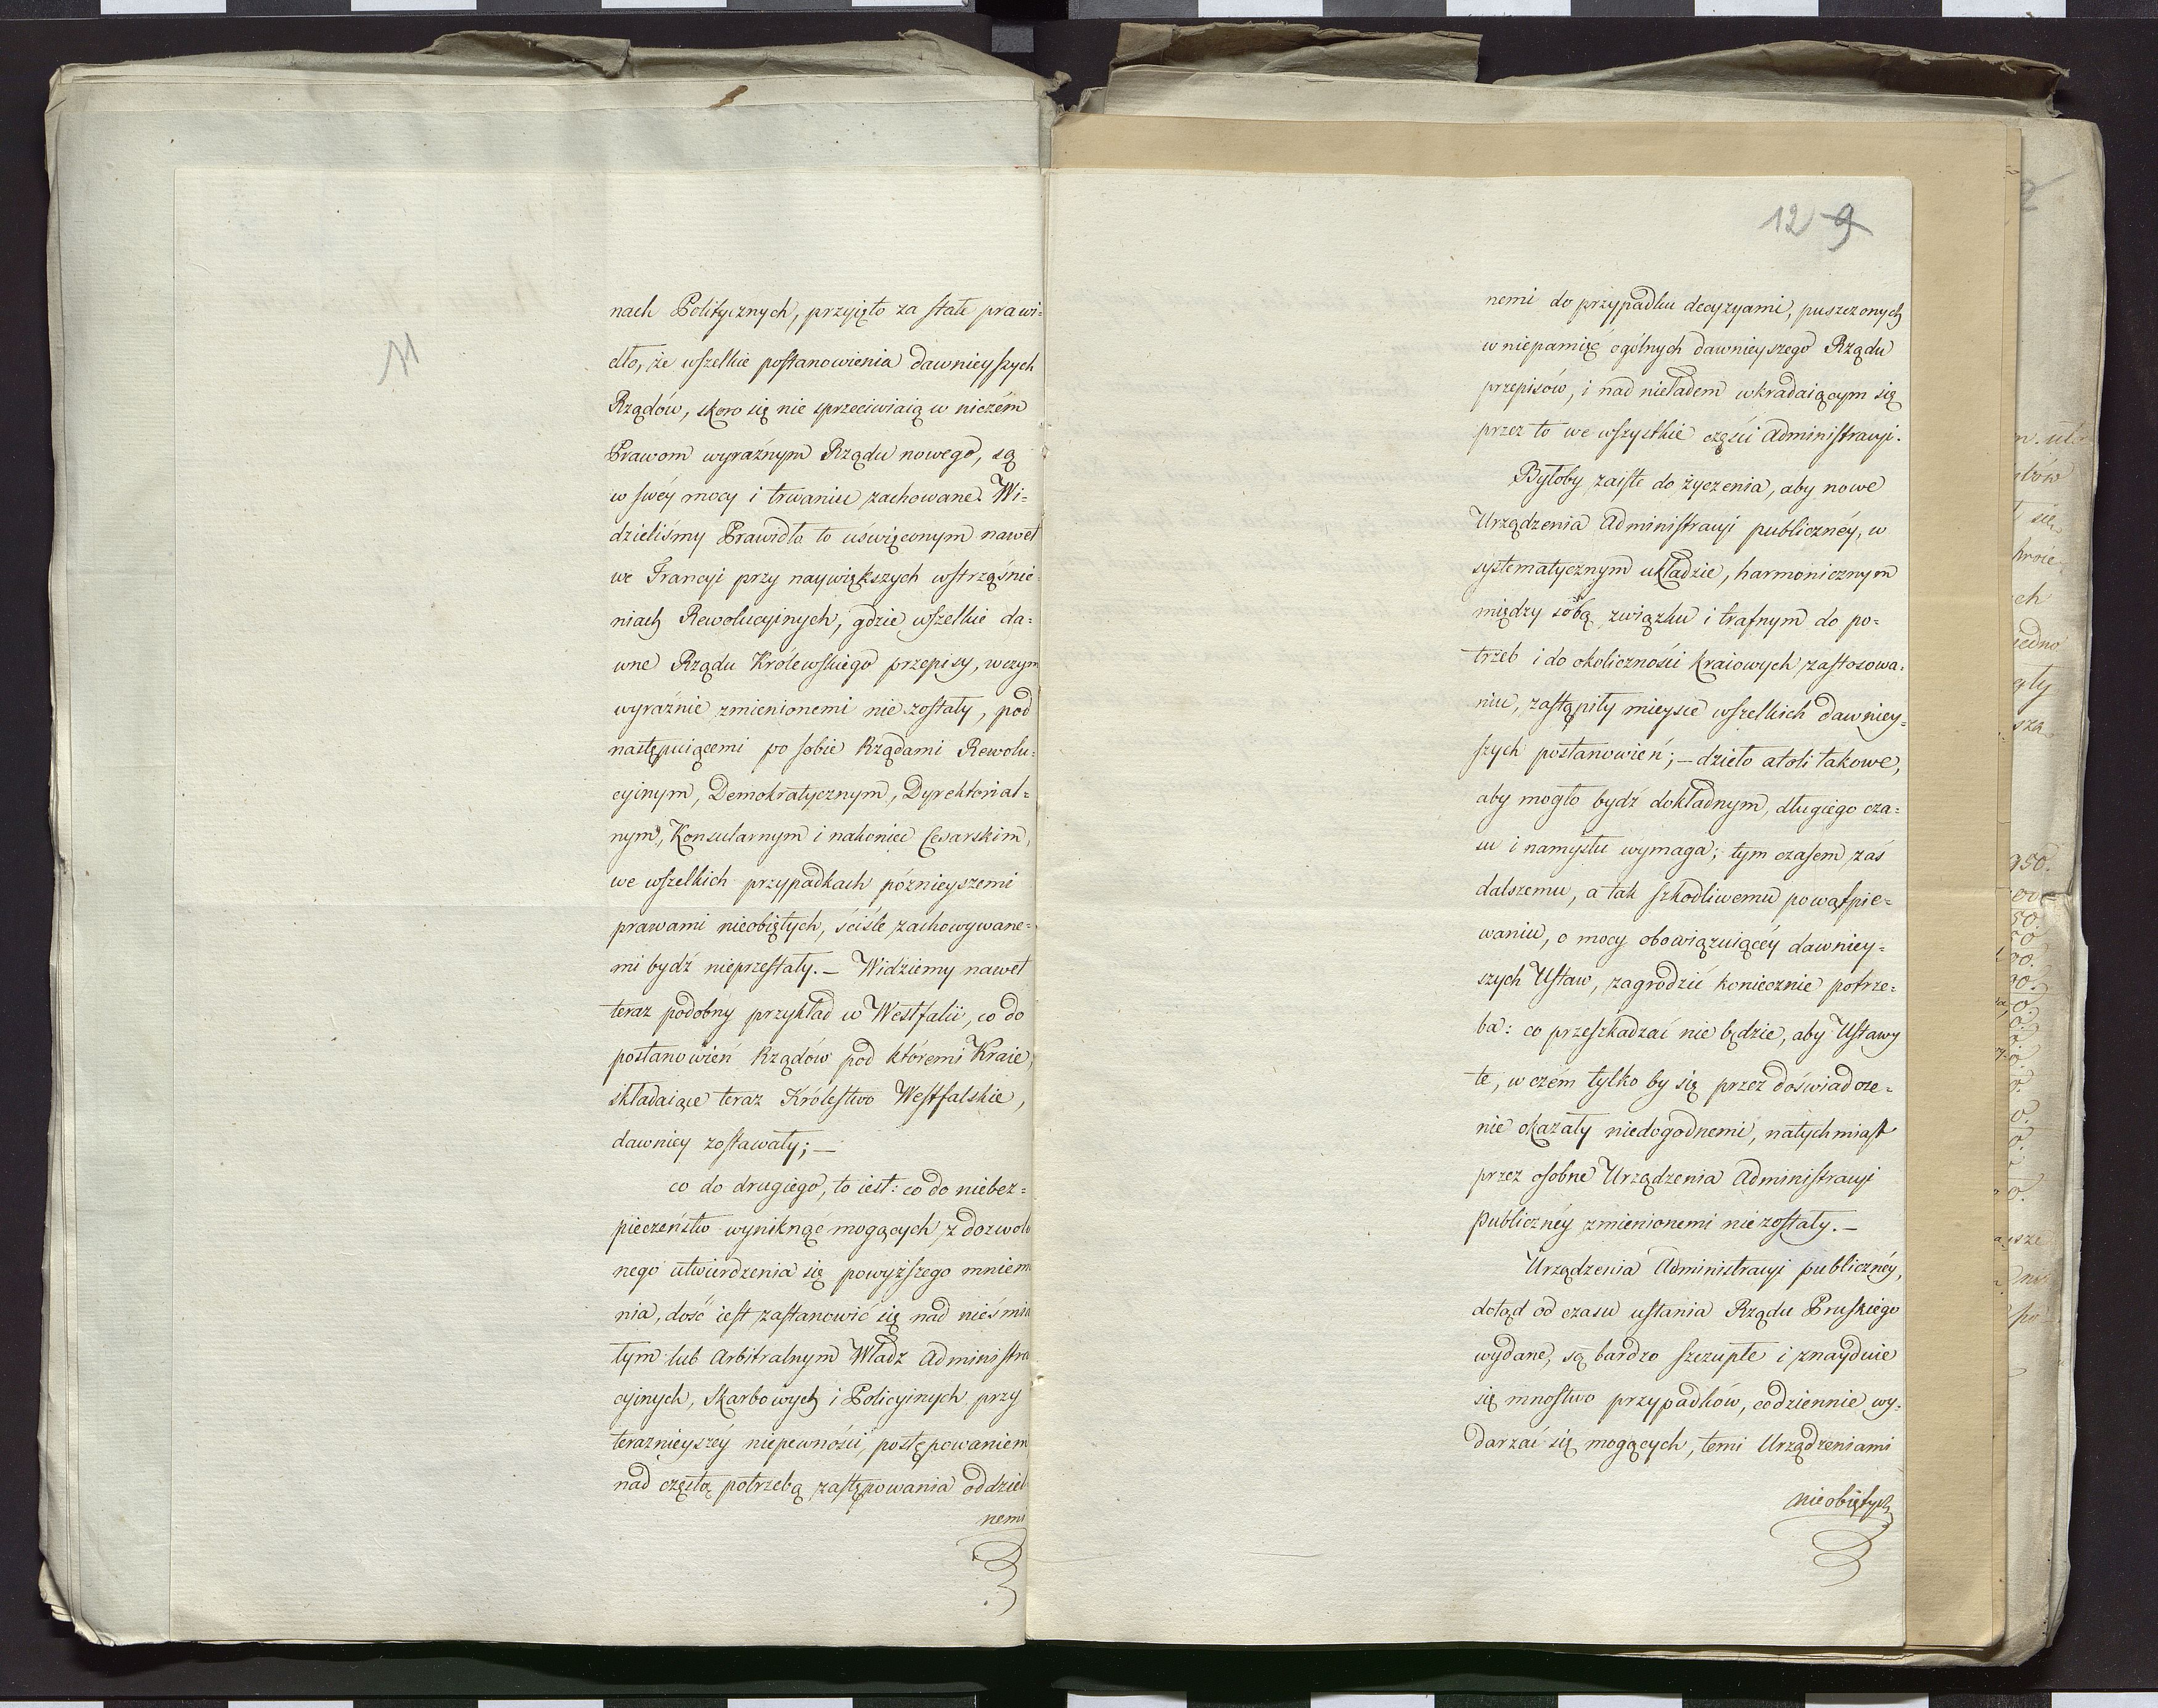 11
nach Politycznych, przyięto za stałe prawi=
dło, że wszelkie postanowienia dawnieyszych
Rządów, skoro się nie sprzeciwiaią w niczém
Prawom wyraźnym Rządu nowego, są
w swéy mocy i trwaniu zachowane. Wi=
dzieliśmy Prawidło to uświęconym nawet
we Francyi przy naywiększych wstrząśnie=
niach Rewolucyinych, gdzie wszelkie da=
wne Rządu Królewskiego przepisy, w czym
wyraźnie zmienionemi nie zostały, pod
następuiącemi po sobie Rządami Rewolu=
cyinym, Demokratycznym, Dyrektorial=
nym, Konsularnym i nakoniec Cesarskim,
we wszelkich przypadkach późnieyszemi
prawami nieobiętych, ściśle zachowywane=
mi bydź nieprzestały. — Widziemy nawet
teraz podobny przykład w Westfalii, co do
postanowień Rządów pod któremi Kraie,
składaiące teraz Królestwo Westfalskie,
dawniey zostawały; —
co do drugiego, to iest: co do niebez=
pieczeństw wyniknąć mogących z dozwolo
nego utwierdzenia się powyższego mniem
nia, dość iest zastanowić się nad nieśmia
łym lub Arbitralnym Władz Administra
cyinych, Skarbowych i Policyinych przy
teraznieyszéy niepewności, postępowaniem
nad częstą potrzebą zastępowania oddziel
nemi
12 9
nemi do przypadku decyzyami, puszczonych
w niepamięć ogólnych dawnieyszego Rządu
przepisów, i nad nieładem wkradaiącym się
przez to we wszystkie części Administracyi.
Byłoby zaiste do życzenia, aby nowe
Urządzenia Administracyi publicznéy, w
systematycznym układzie, harmonicznym
między sobą związku i trafnym do po=
trzeb i do okoliczności kraiowych zastosowa=
niu, zastąpiły mieysce wszelkich dawniey=
szych postanowień; — dzieło atoli takowe,
aby mogło bydź dokładnym, długiego cza=
su i namysłu wymaga; tym czasem zaś
dalszemu, a tak szkodliwemu powątpie=
waniu, o mocy obowiązuiącéy dawniey=
szych Ustaw, zagrodzić koniecznie potrze=
ba: co przeszkadzać nie będzie, aby Ustawy
te, w czém tylko by się przez doświadcze=
nie okazały niedogodnemi, natychmiast
przez osobne Urządzenia Administracyi
publicznéy zmienionemi nie zostały. —
Urządzenia Administracyi publicznéy,
dotąd od czasu ustania Rządu Pruskiego
wydane, są bardzo szczupłe i znayduie
się mnostwo przypadków, codziennie wy=
darzać się mogących, temi Urządzeniami
nieobiętych